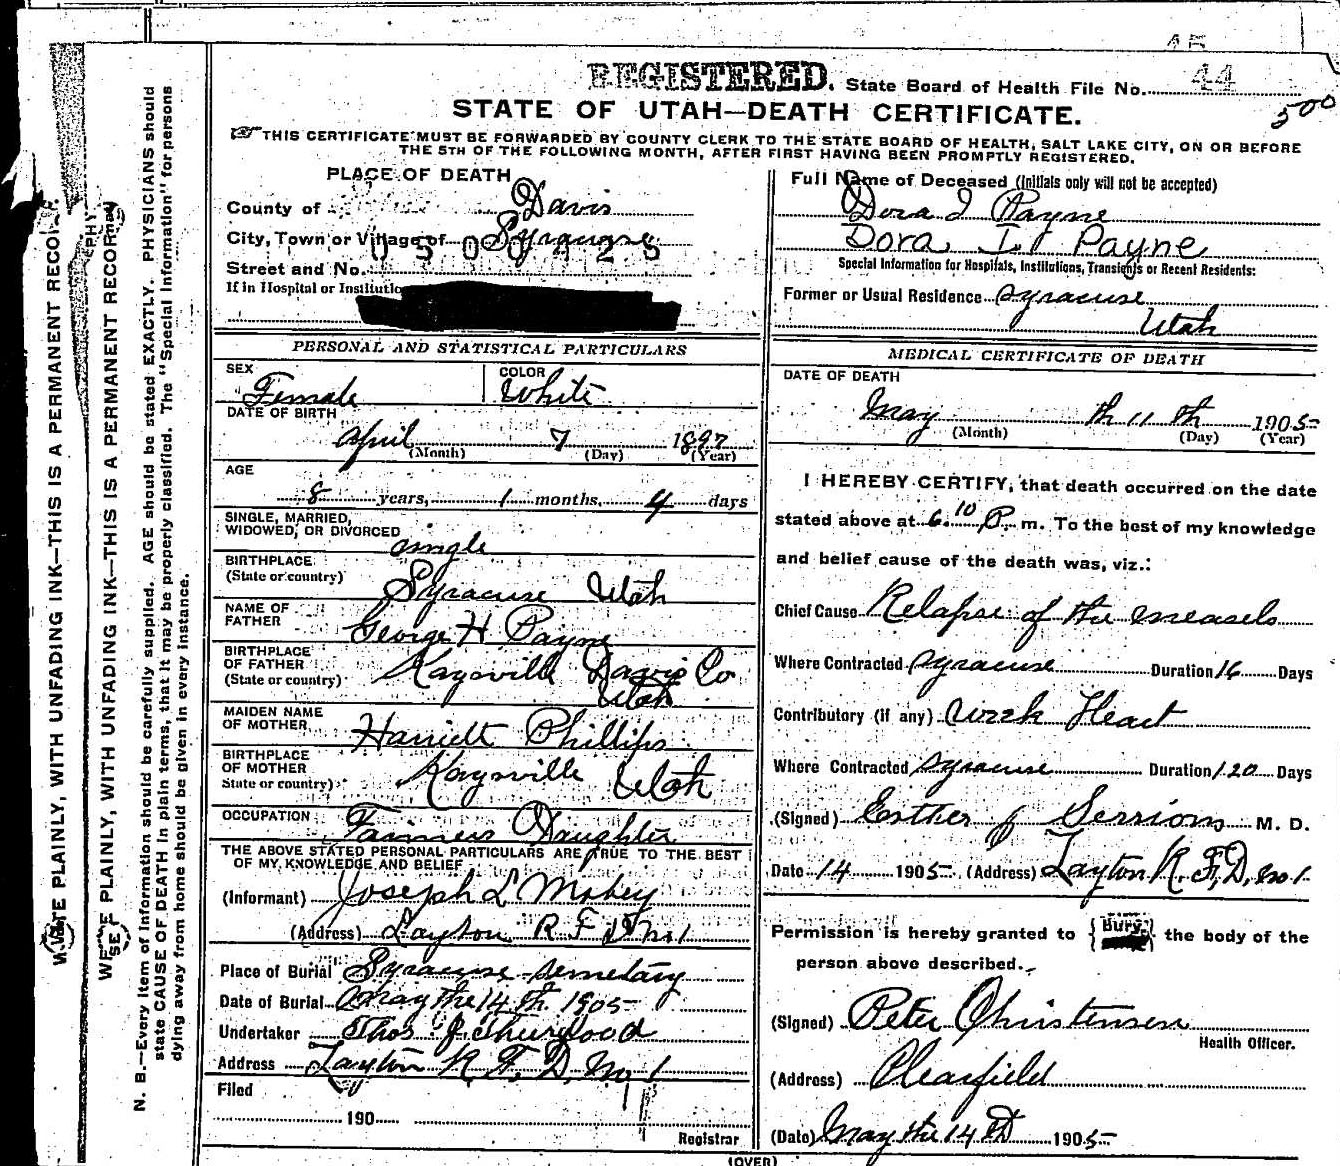 45
REGISTERED. State Board of Health File No. 44
500
STATE OF UTAH—DEATH CERTIFICATE.
☞ THIS CERTIFICATE MUST BE FORWARDED BY COUNTY CLERK TO THE STATE BOARD OF HEALTH, SALT LAKE CITY, ON OR BEFORE
THE 5TH OF THE FOLLOWING MONTH, AFTER FIRST HAVING BEEN PROMPTLY REGISTERED.
PLACE OF DEATH
County of Davis
City, Town or Village of Syracuse
0500425
Street and No.
If in Hospital or Institutio
Full Name of Deceased (Initials only will not be accepted)
Dora I Payne
Dora I. Payne
Special Information for Hospitals, Institutions, Transients or Recent Residents:
Former or Usual Residence Syracuse
Utah
PERSONAL AND STATISTICAL PARTICULARS
SEX Female COLOR White
DATE OF BIRTH
April 7 1897
(Month) (Day) (Year)
AGE
8 years, 1 months, 4 days
SINGLE, MARRIED,
WIDOWED, OR DIVORCED single
BIRTHPLACE
(State or country) Syracuse Utah
NAME OF
FATHER George H Payne
BIRTHPLACE
OF FATHER Kaysville Davis Co
(State or country) Utah
MAIDEN NAME
OF MOTHER Harriett Phillips
BIRTHPLACE
OF MOTHER Kaysville Utah
State or country)
OCCUPATION Farmers Daughter
THE ABOVE STATED PERSONAL PARTICULARS ARE TRUE TO THE BEST
OF MY KNOWLEDGE AND BELIEF
(Informant) Joseph L
(Address) Layton R F D No 1
Place of Burial Syracuse semetary
Date of Burial may the 14 th. 1905
Undertaker Thos. J Thurgood
Address Layton R. F. D. No 1
Filed
190
Registrar
MEDICAL CERTIFICATE OF DEATH
DATE OF DEATH
May th 11 th 1905
(Month) (Day) (Year)
I HEREBY CERTIFY, that death occurred on the date
stated above at 6.10 P. m. To the best of my knowledge
and belief cause of the death was, viz.:
Chief Cause Relapse of the measels
Where Contracted Syracuse Duration 16 Days
Contributory (if any) week Heart
Where Contracted Syracuse Duration 120 Days
(Signed) Esther J Serrions M. D.
Date 14 1905. (Address) Layton R. F. D. no 1.
Permission is hereby granted to { Bury } the body of the
person above described.
(Signed) Peter Christensen
Health Officer.
(Address) Clearfield
(Date) May the 14 th 1905
(OVER)
WRITE PLAINLY, WITH UNFADING INK—THIS IS A PERMANENT RECOR
WE PLAINLY, WITH UNFADING INK—THIS IS A PERMANENT RECOR
N. B.—Every item of information should be carefully supplied. AGE should be stated EXACTLY. PHYSICIANS should
state CAUSE OF DEATH in plain terms, that it may be properly classified. The "Special Information" for persons
dying away from home should be given in every instance.